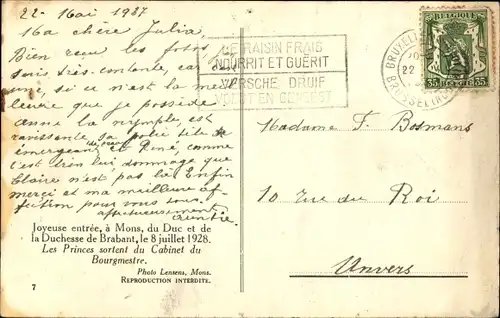 22 - Mai 1937
Ma chère Julia
Bien reçu les fotos, j'en
suis très contente, car
une, si ce n'est la meil
leure que je possède
anne la nymphe, est
ravissante sa petite tête
émergeant de l'océan et René, comme
c'est très lui dommage que
Claire n'est pas là Enfin
merci et ma meilleure af-
fection pour vous tous
affectueusement
tantie.
Joyeuse entrée, à Mons, du Duc et de
la Duchesse de Brabant, le 8 juillet 1928.
Les Princes sortent du Cabinet du
Bourgmestre.
Photo Lensens, Mons.
REPRODUCTION INTERDITE.
7
LE RAISIN FRAIS
NOURRIT ET GUÉRIT
VERSCHE DRUIF
VOEDT EN GENEEST
BRUXELLES
22
BRUSSEL
BELGIQUE
35 35
Madame F. Bosmans
10 rue du Roi
Anvers